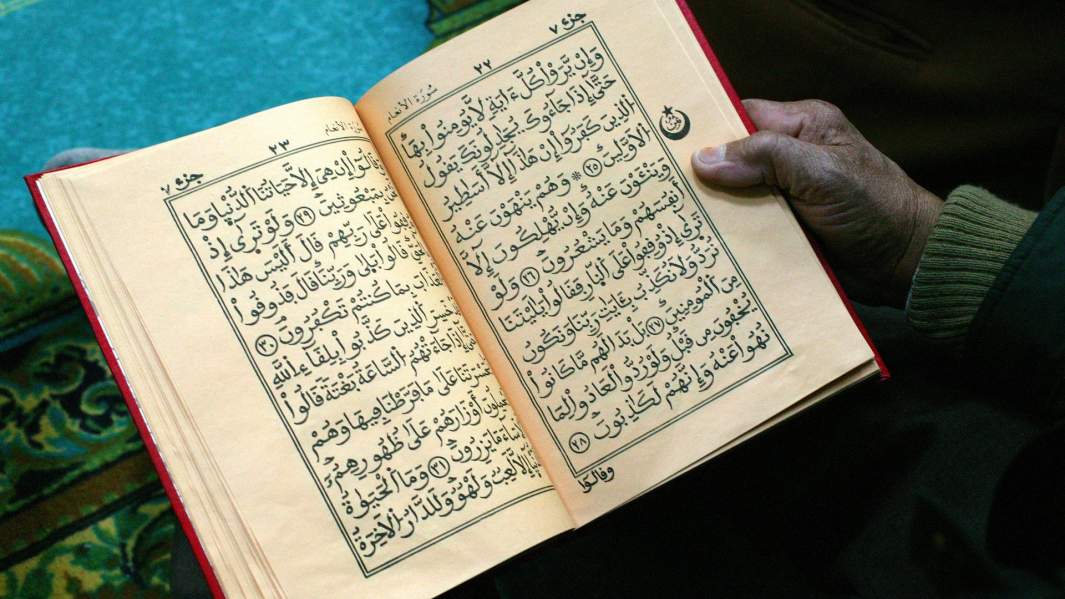 جزء ٧
٢٢
سُورَةُ الأنعام
وَإِن يَرَوْا۟ كُلَّ ءَايَةٍ لَّا يُؤْمِنُوا۟ بِهَا
حَتَّىٰٓ إِذَا جَآءُوكَ يُجَٰدِلُونَكَ يَقُولُ
ٱلَّذِينَ كَفَرُوٓا۟ إِنْ هَٰذَآ إِلَّآ أَسَٰطِيرُ
ٱلْأَوَّلِينَ ٢٥ * وَهُمْ يَنْهَوْنَ عَنْهُ
وَيَنْـَٔوْنَ عَنْهُ وَإِن يُهْلِكُونَ إِلَّآ
أَنفُسَهُمْ وَمَا يَشْعُرُونَ ٢٦ وَلَوْ
تَرَىٰٓ إِذْ وُقِفُوا۟ عَلَى ٱلنَّارِ فَقَالُوا۟ يَٰلَيْتَنَا
نُرَدُّ وَلَا نُكَذِّبَ بِـَٔايَٰتِ رَبِّنَا وَنَكُونَ
مِنَ ٱلْمُؤْمِنِينَ ٢٧ بَلْ بَدَا لَهُم مَّا كَانُوا۟
يُخْفُونَ مِن قَبْلُ وَلَوْ رُدُّوا۟ لَعَادُوا۟ لِمَا
نُهُوا۟ عَنْهُ وَإِنَّهُمْ لَكَٰذِبُونَ ٢٨
وقالوا
سُورَةُ الأنعام
٢٣
جزء ٧
وَقَالُوٓا۟ إِنْ هِىَ إِلَّا حَيَاتُنَا ٱلدُّنْيَا وَمَا
بِمَبْعُوثِينَ ٢٩ وَلَوْ تَرَىٰٓ إِذْ
عَلَىٰ رَبِّهِمْ قَالَ أَلَيْسَ هَٰذَا
قَالُوا۟ بَلَىٰ وَرَبِّنَا قَالَ فَذُوقُوا۟
بِمَا كُنتُمْ تَكْفُرُونَ ٣٠
خَسِرَ ٱلَّذِينَ كَذَّبُوا۟ بِلِقَآءِ ٱللَّهِ
إِذَا جَآءَتْهُمُ ٱلسَّاعَةُ بَغْتَةً قَالُوا۟
عَلَىٰ مَا فَرَّطْنَا فِيهَا وَهُمْ
أَوْزَارَهُمْ عَلَىٰ ظُهُورِهِمْ
مَا يَزِرُونَ ٣١ وَمَا ٱلْحَيَوٰةُ
إِلَّا لَعِبٌ وَلَهْوٌ وَلَلدَّارُ ٱلْءَاخِرَةُ